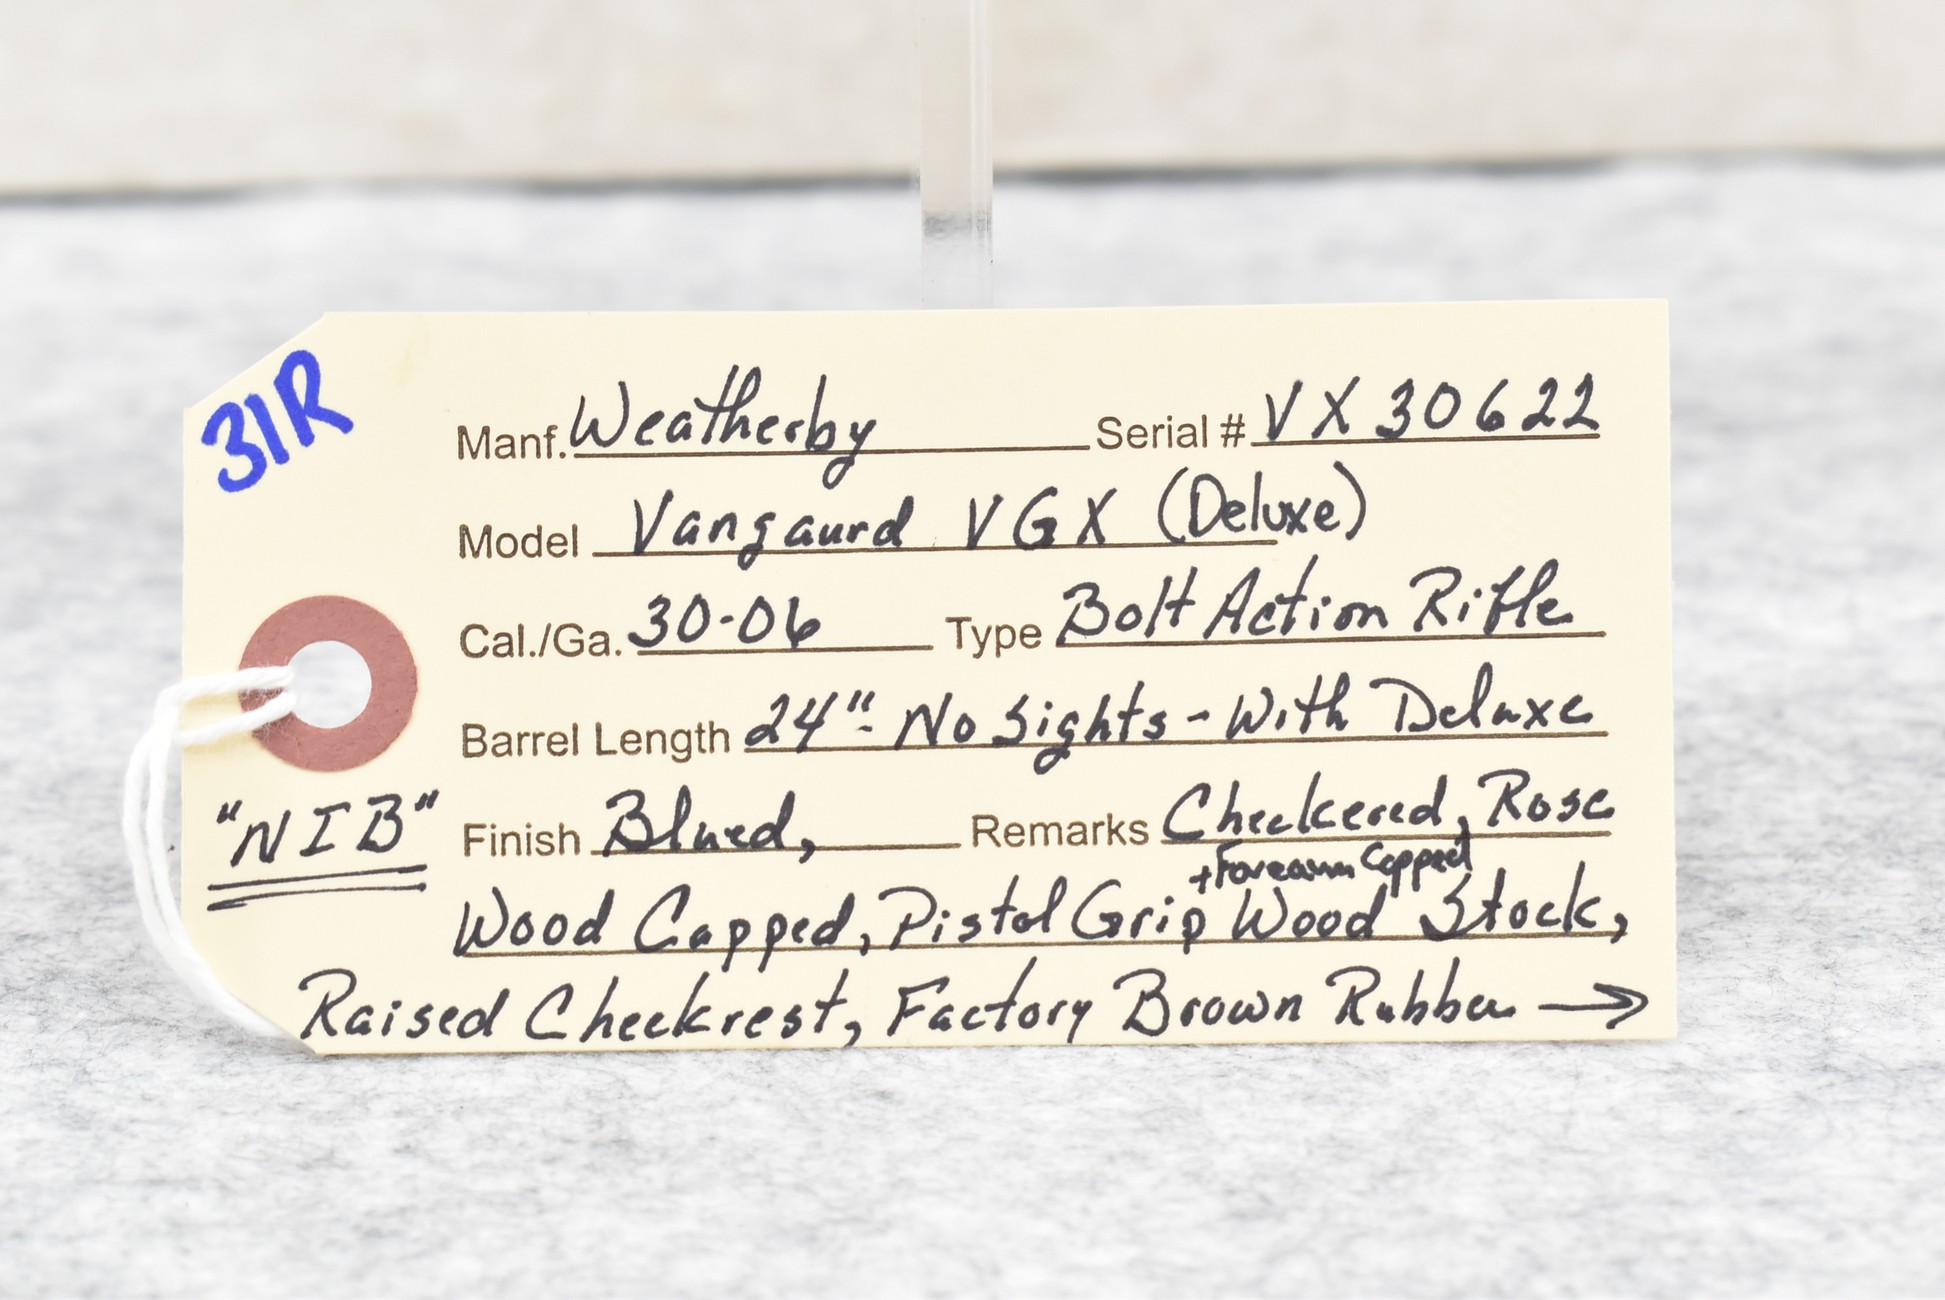 31R
Manf. Weatherby Serial # VX30622
Model Vangaurd VGX (Deluxe)
Cal./Ga. 30-06 Type Bolt Action Rifle
Barrel Length 24"- No Sights - With Deluxe
"NIB" Finish Blued, Remarks Checkered, Rose
+ Forearm Capped
Wood Capped, Pistol Grip Wood Stock,
Raised Cheekrest, Factory Brown Rubber →